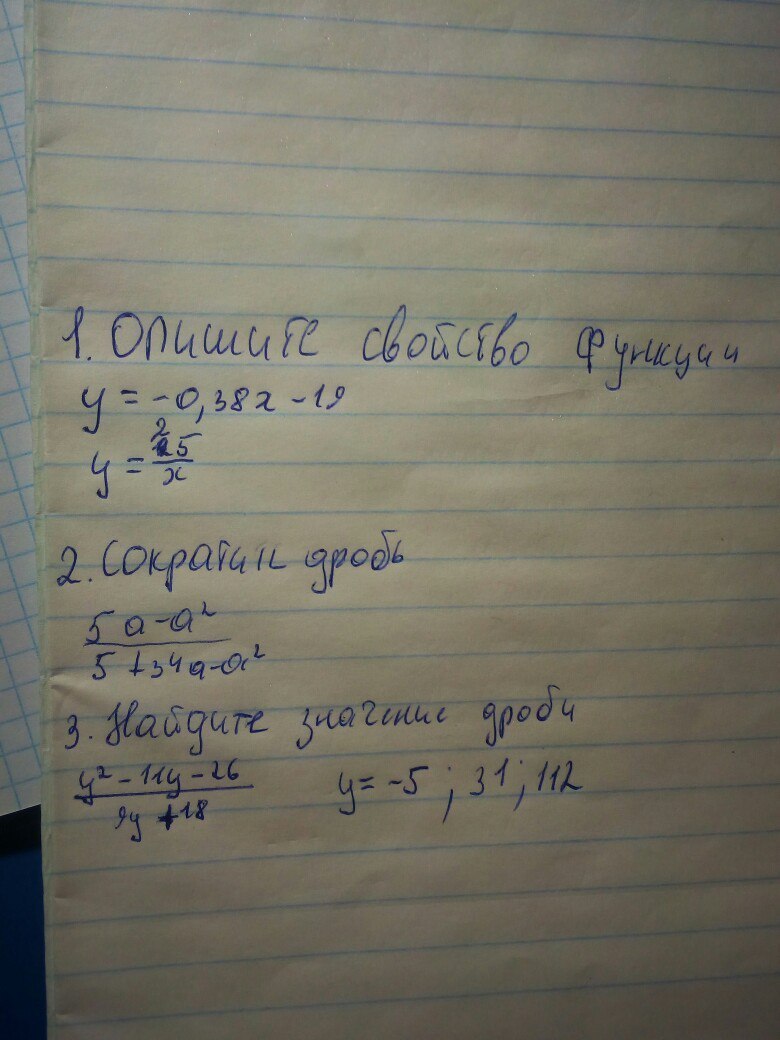 1. Опишите свойство функции
y = -0,38x - 19
y = 25/x
2. Сократи дробь
5a-a²
5+34a-a²
3. Найдите значение дроби
y²-11y-26
9y+18 y=-5; 31; 112